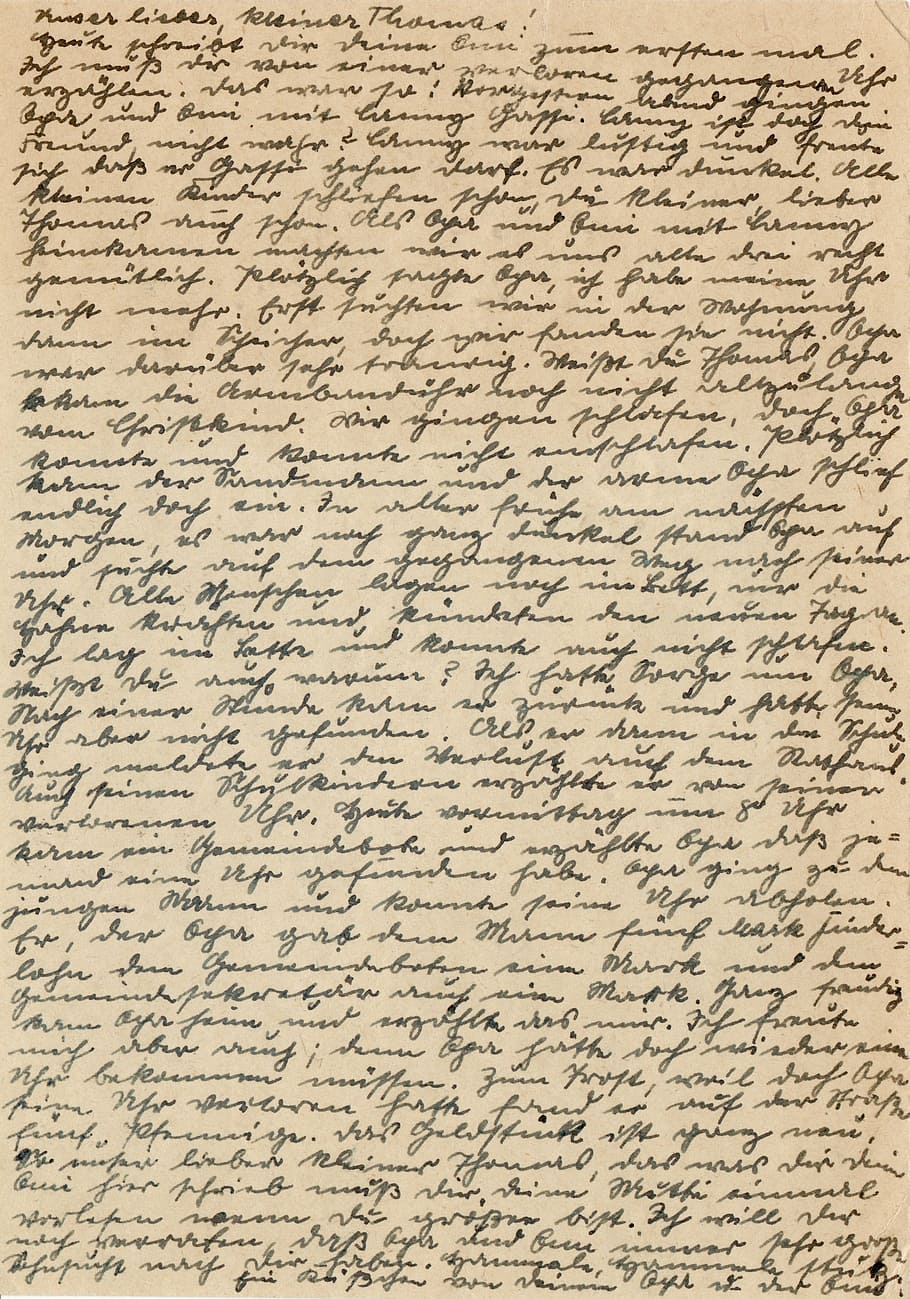 Unser lieber, kleiner Thomas!
Heute schreibt Dir deine Omi zum ersten mal.
Ich muß dir von einer verloren gegangenen Uhr
erzählen. Das war so: Vorgestern abend gingen
Opa und Omi mit Lanny Gassi. Lanny ist doch dein
Freund, nicht wahr? Lanny war lustig und freute
sich daß er Gassi gehen darf. Es war dunkel. Alle
kleinen Kinder schliefen schon, du kleiner, lieber
Thomas auch schon. Als Opa und Omi mit Lanny
heimkamen machten wir es uns alle drei recht
gemütlich. Plötzlich sagte Opa, ich habe meine Uhr
nicht mehr. Erst suchten wir in der Wohnung
dann im Speicher, doch wir fanden sie nicht. Opa
war darüber sehr traurig. Weißt du Thomas, Opa
bekam die Armbanduhr noch nicht allzulange
vom Christkind. Wir gingen schlafen, doch Opa
konnte und konnte nicht einschlafen. Plötzlich
kam der Sandmann und der arme Opa schlief
endlich doch ein. In aller frühe am nächsten
Morgen, es war noch ganz dunkel stand Opa auf
und suchte auf dem gegangenen Weg nach seiner
Uhr. Alle Menschen lagen noch im Bett, nur die
Hähne krähten und kündeten den neuen Tag an.
Ich lag im Bette und konnte auch nicht schlafen.
Weißt Du auch warum? Ich hatte Sorge um Opa.
Nach einer Stunde kam er zurück und hatte seine
Uhr aber nicht gefunden. Als er dann in die Schule
ging meldete er den Verlust auf dem Rathaus.
Auch seinen Schulkindern erzählte er von seiner
verlorenen Uhr. Heute vormittag um 8 Uhr
kam ein Gemeindebote und erzählte Opa daß je=
mand eine Uhr gefunden habe. Opa ging zu dem
jungen Mann und konnte seine Uhr abholen.
Er, der Opa gab dem Mann fünf Mark Finder=
lohn dem Gemeindeboten eine Mark und dem
Gemeindesekretär auch eine Mark. Ganz freudig
kam Opa heim und erzählte das mir. Ich freute
mich aber auch; denn Opa hätte doch wieder eine
Uhr bekommen müssen. Zum Trost, weil doch Opa
seine Uhr verloren hatte fand er auf der Straße
fünf Pfennige. Das Geldstück ist ganz neu.
So unser lieber kleiner Thomas, das was dir deine
Omi hier schrieb muß dir deine Mutti einmal
vorlesen wenn du größer bist. Ich will dir
noch verraten, daß Opa und Omi immer sehr große
Sehnsucht nach Dir haben.
Ein Küßchen von deinem Opa u. der Omi.